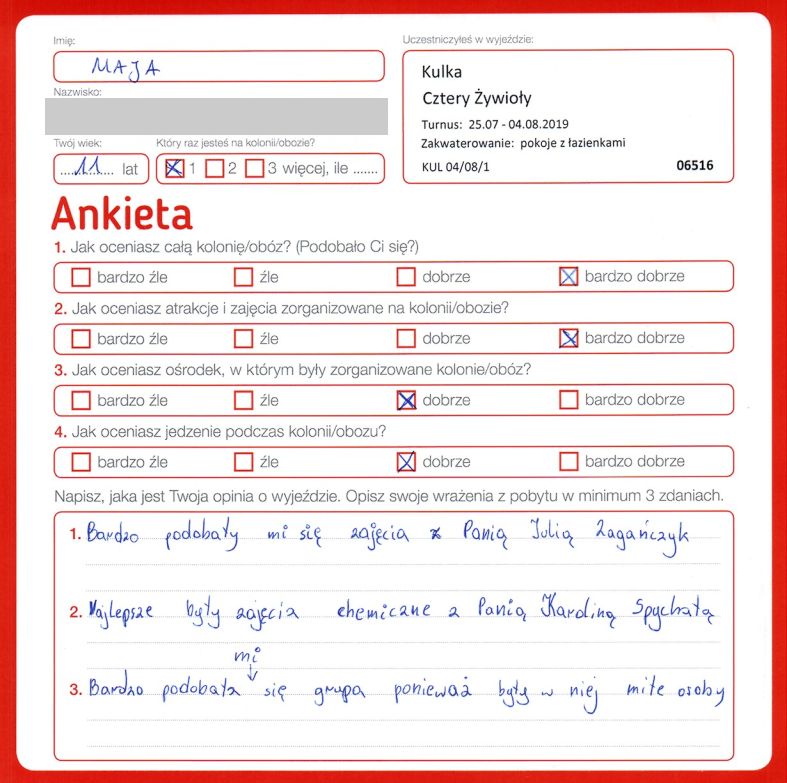 Imię:
MAJA
Nazwisko:
Twój wiek:
11 lat
Który raz jesteś na kolonii/obozie?
1 2 3 więcej, ile .......
Uczestniczyłeś w wyjeździe:
Kulka
Cztery Żywioły
Turnus: 25.07 - 04.08.2019
Zakwaterowanie: pokoje z łazienkami
KUL 04/08/1 06516
Ankieta
1. Jak oceniasz całą kolonię/obóz? (Podobało Ci się?)
bardzo źle źle dobrze bardzo dobrze
2. Jak oceniasz atrakcje i zajęcia zorganizowane na kolonii/obozie?
bardzo źle źle dobrze bardzo dobrze
3. Jak oceniasz ośrodek, w którym były zorganizowane kolonie/obóz?
bardzo źle źle dobrze bardzo dobrze
4. Jak oceniasz jedzenie podczas kolonii/obozu?
bardzo źle źle dobrze bardzo dobrze
Napisz, jaka jest Twoja opinia o wyjeździe. Opisz swoje wrażenia z pobytu w minimum 3 zdaniach.
1. Bardzo podobały mi się zajęcia z Panią Julią Zagańczyk
2. Najlepsze były zajęcia chemiczne z Panią Karoliną Spychałą
mi
3. Bardzo podobała się grupa ponieważ były w niej miłe osoby